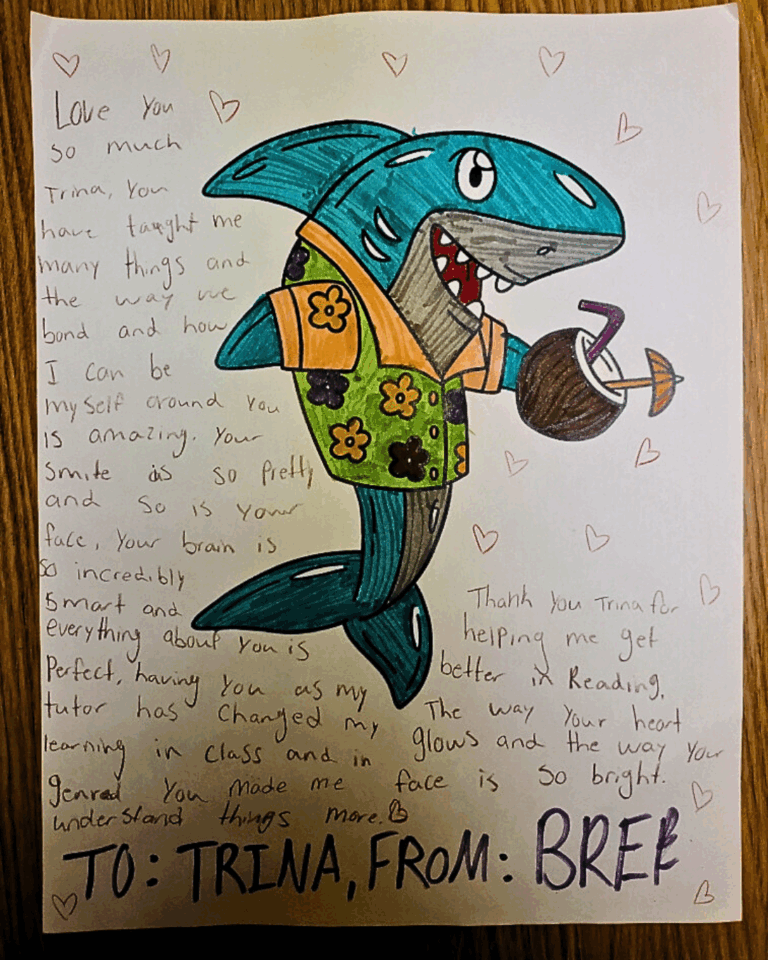 Love you
so much
Trina, You
have taught me
many things and
the way we
bond and how
I can be
myself around you
is amazing. Your
smile is so pretty
and so is your
face, Your brain is
so incredibly
smart and
everything about you is
Perfect, having you as my
tutor has changed my
learning in class and in
genred You made me
understand things more.
Thank you Trina for
helping me get
better in Reading.
The way your heart
glows and the way your
face is so bright.
TO: TRINA, FROM: